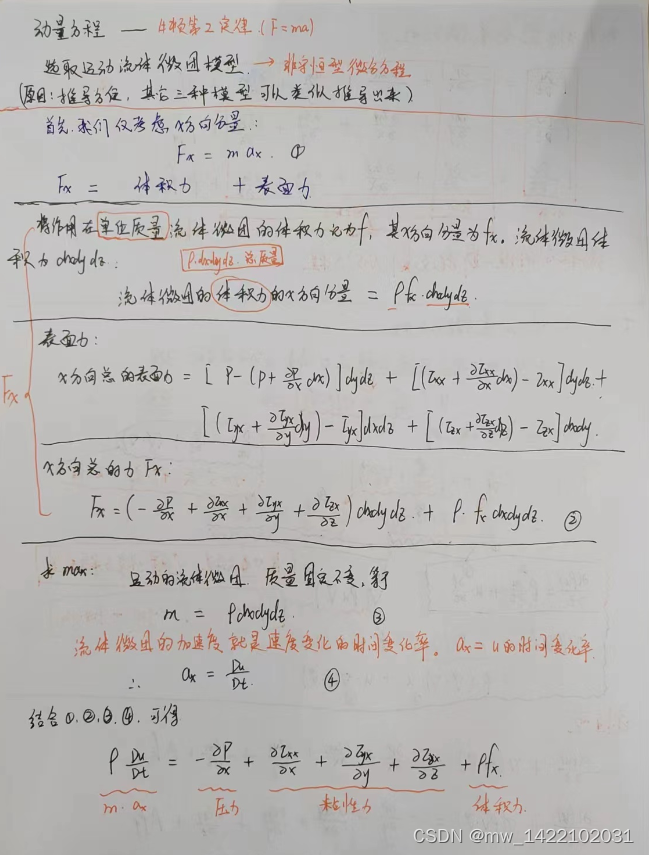 动量方程 — 牛顿第2定律 (F=ma)
选取运动流体微团模型. → 非守恒型微分方程
(原因:推导方便, 其它三种模型可以类似推导出来)
首先,我们仅考虑x方向分量:
Fx = m ax. ①
Fx = 体积力 + 表面力
将作用在单位质量流体微团的体积力记为f, 其x方向分量为fx. 流体微团体
积为dxdydz. ρ.dxdydz 总质量
流体微团的体积力的x方向分量 = ρfx.dxdydz.
表面力:
x方向总的表面力 = [P-(P+∂P/∂x dx)]dydz + [(τxx+∂τxx/∂x dx)-τxx]dydz+
[(τyx+∂τyx/∂y dy)-τyx]dxdz + [(τzx+∂τzx/∂z dz)-τzx]dxdy.
Fx
x方向总的力 Fx:
Fx = (-∂P/∂x + ∂τxx/∂x + ∂τyx/∂y + ∂τzx/∂z) dxdydz. + ρ. fx dxdydz. ②
求max: 运动的流体微团 质量固定不变,等于
m = ρdxdydz ③
流体微团的加速度就是速度变化的时间变化率. ax = u的时间变化率
∴ ax = Du/Dt. ④
结合①,②,③,④. 可得
ρ Du/Dt = -∂P/∂x + ∂τxx/∂x + ∂τyx/∂y + ∂τzx/∂z + ρfx.
m.ax 压力 粘性力 体积力
CSDN @mw_1422102031